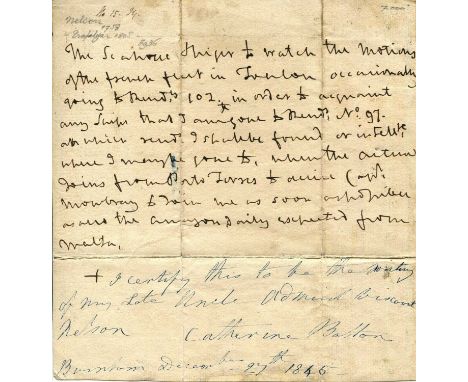 No 15.
Nelson
1758
Trafalgar 1805
The Seahorse & Niger to watch the Motions
of the french fleet in Toulon occasionally
going to Rendz 102 + in order to acquaint
any Ships that I am gone to Rendz No 97.
at which rendz I shall be found or intellce
where I may be gone to, when the active
Joins from Porto Torres to desire Capt
Mowbray to Join me as soon as possible
as also the amazon daily expected from
malta.
+ I certify this to be the writing
of my late Uncle Admiral Viscount
Nelson Catherine Bolton
Burnham December 27th 1845